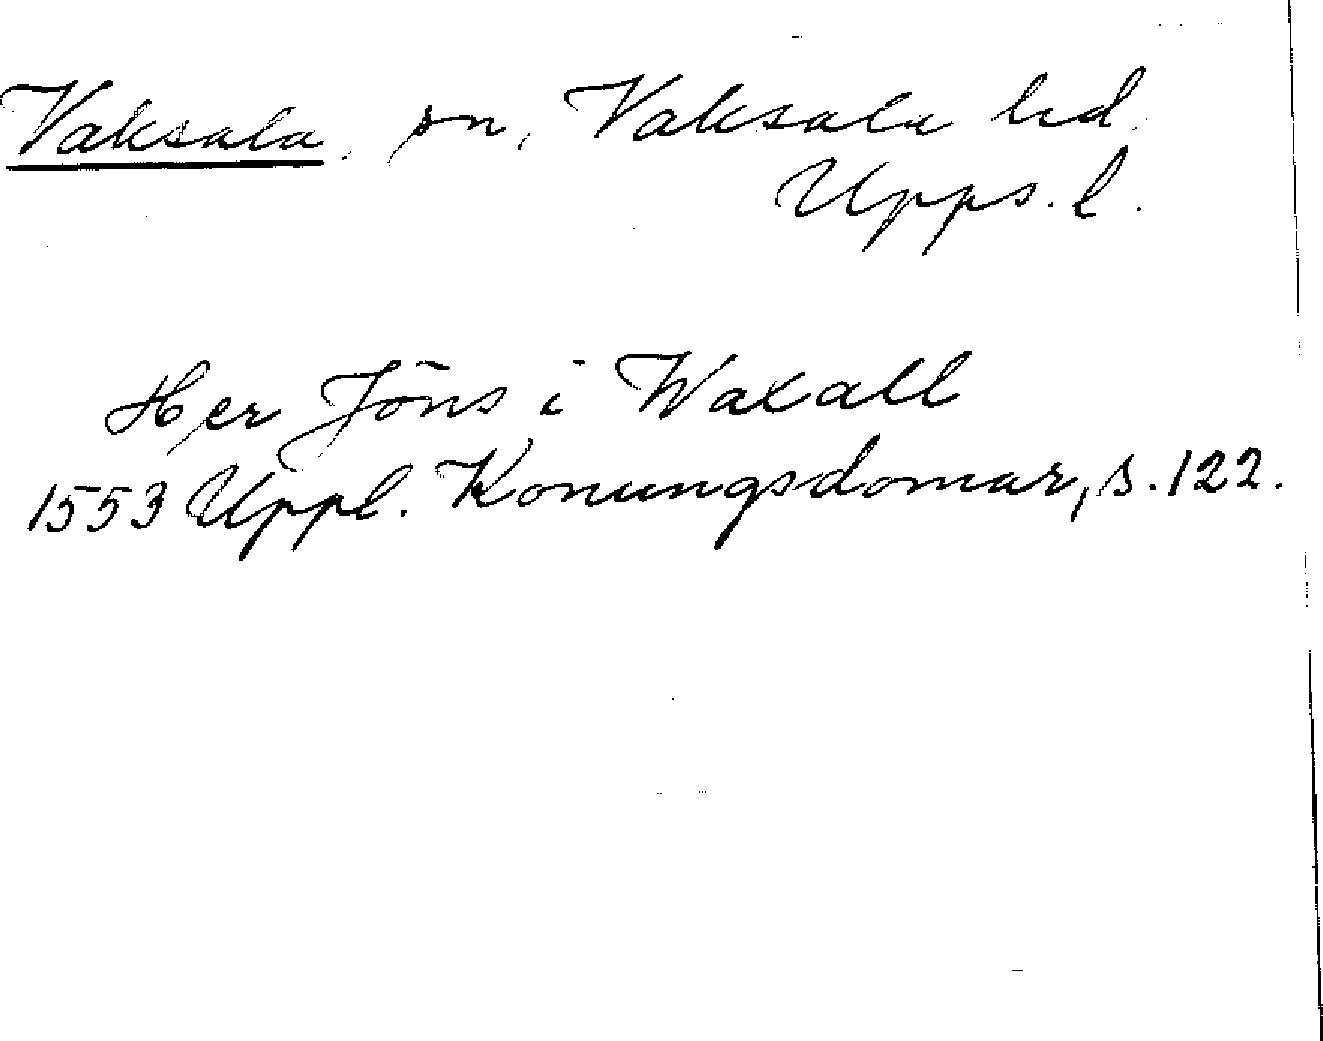 Vaksala, sn, Vaksala hd.
Upps. l.
Her Jöns i Waxall
1553 Uppl. Konungsdomar, s. 122.